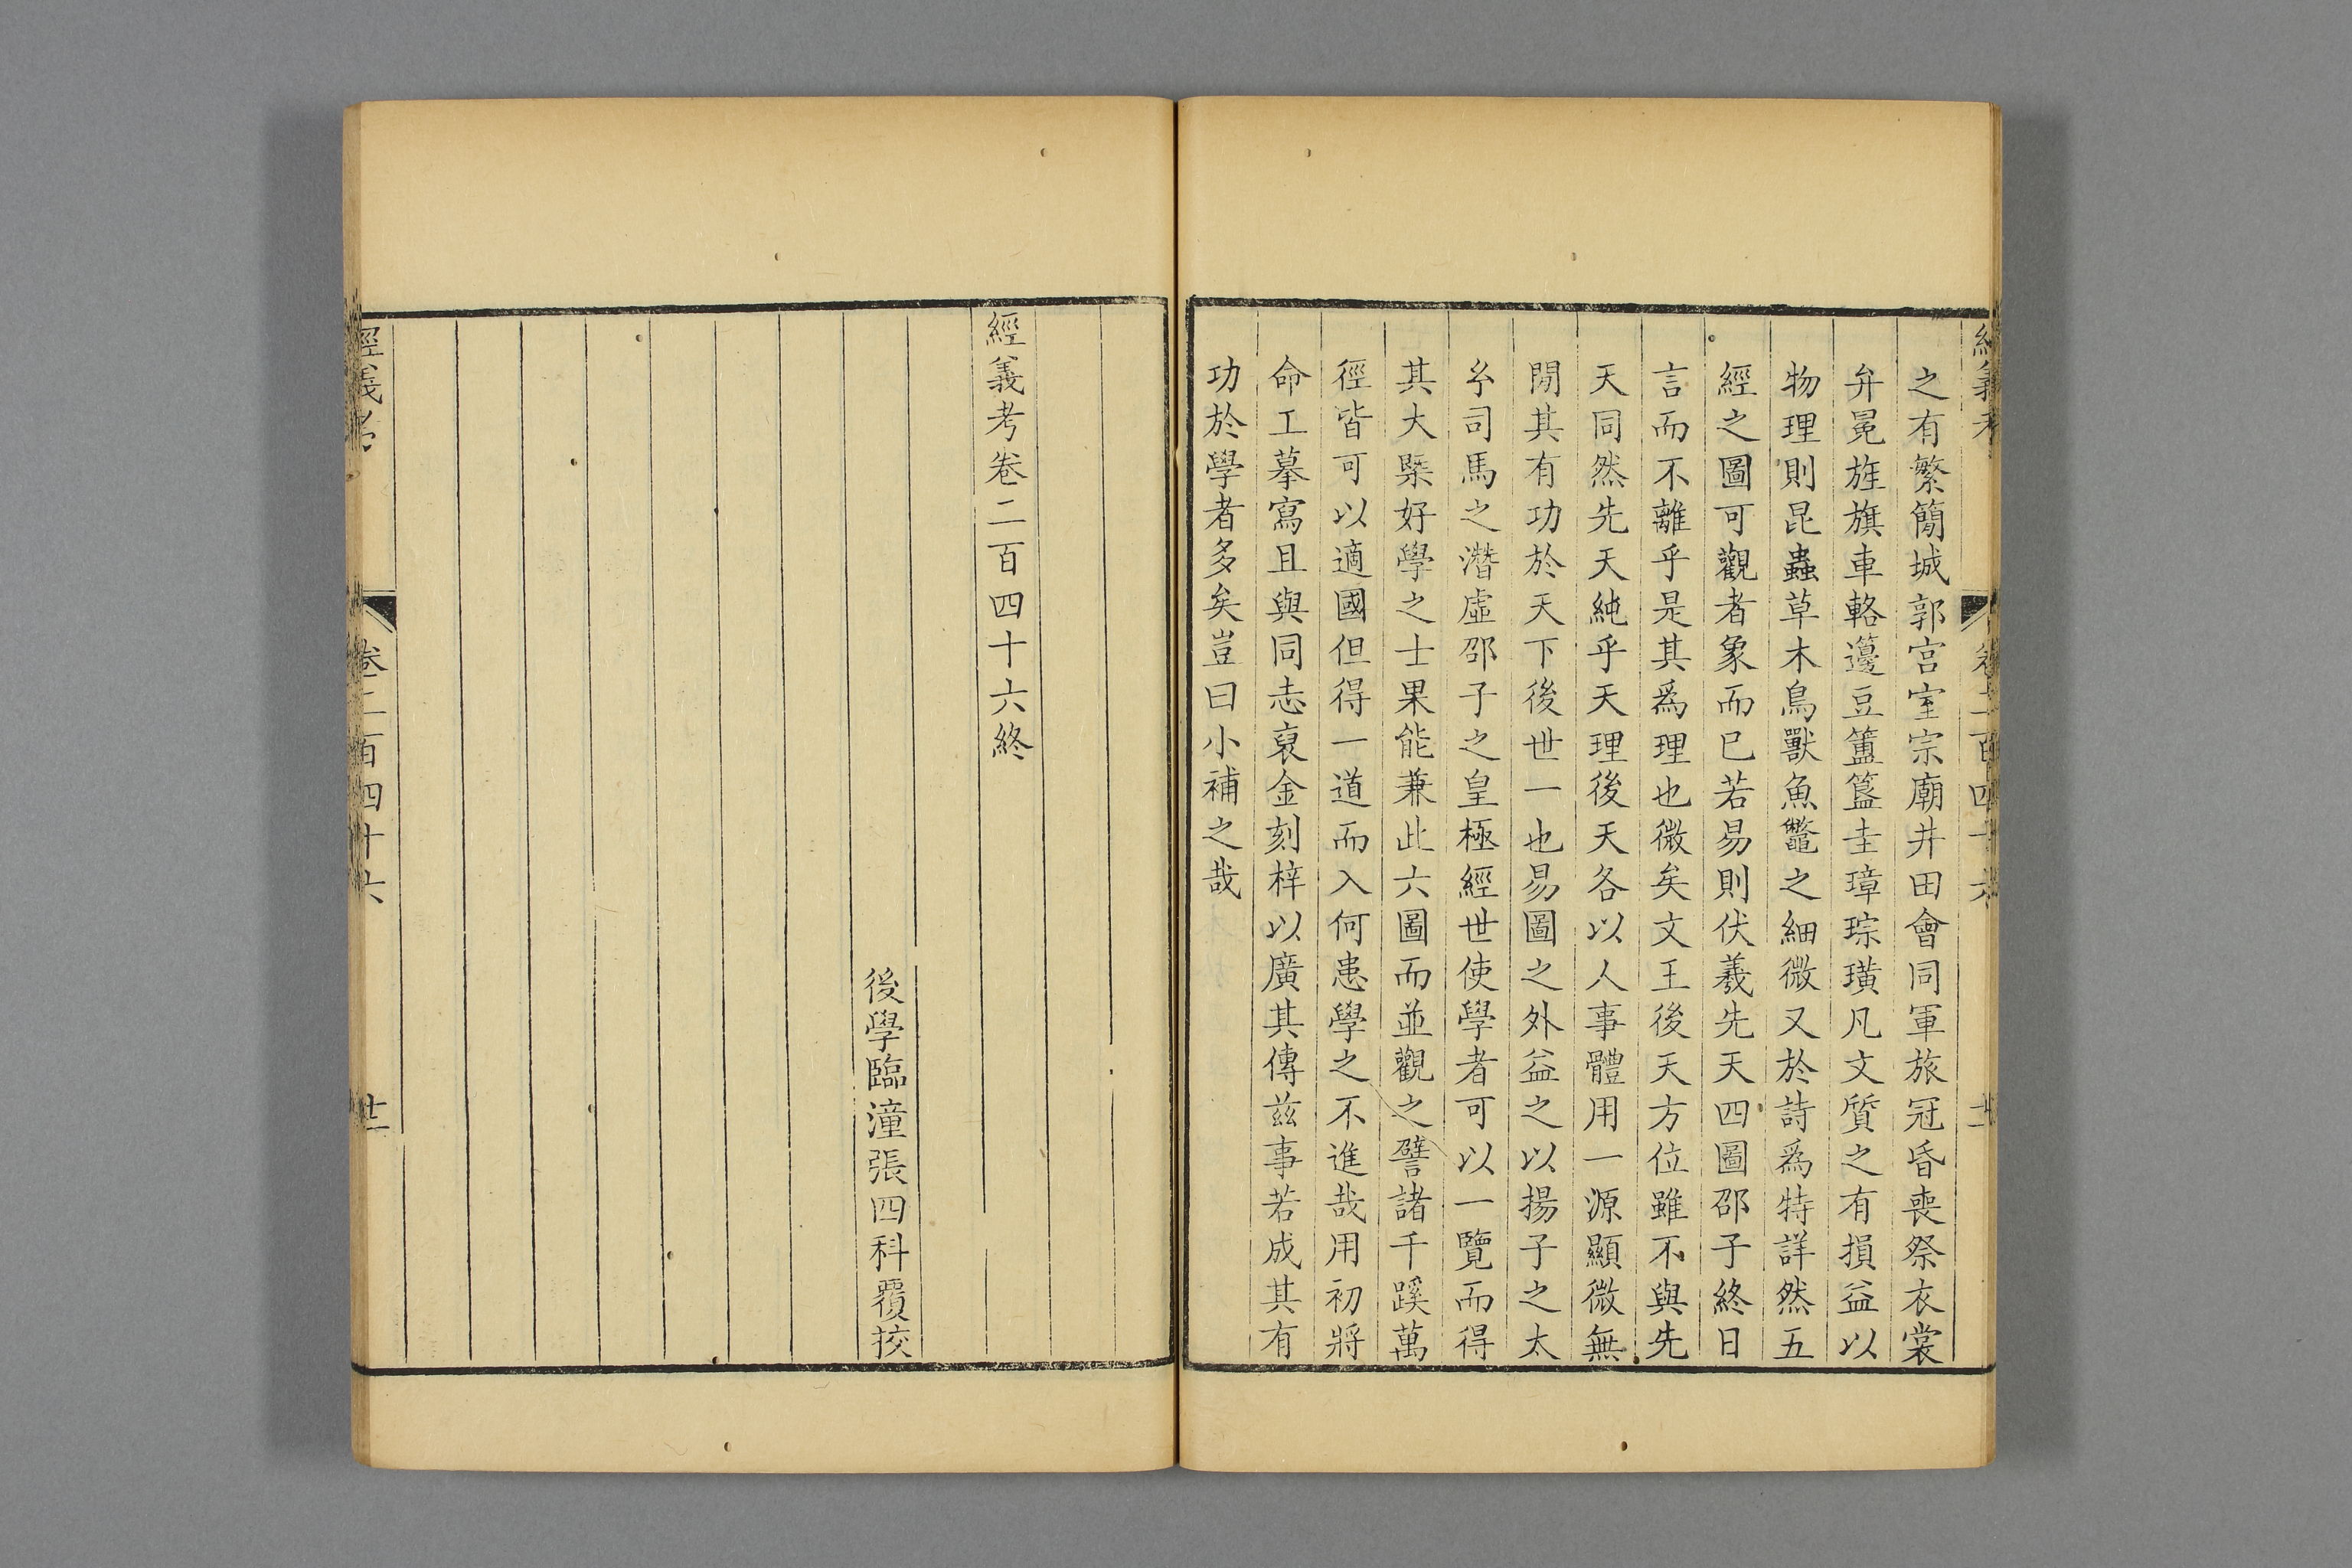 經義考
卷二百四十六
之有繁簡城郭宮室宗廟井田會同軍旅冠昏喪祭衣裳
弁冕旌旗車輅籩豆簠簋圭璋琮璜凡文質之有損益以
物理則昆蟲草木鳥獸魚鼈之細微又於詩爲特詳然五
經之圖可觀者象而已若易則伏羲先天四圖邵子終日
言而不離乎是其爲理也微矣文王後天方位雖不與先
天同然先天純乎天理後天各以人事體用一源顯微無
閒其有功於天下後世一也易圖之外益之以揚子之太
玄司馬之潛虛邵子之皇極經世使學者可以一覽而得
其大槩好學之士果能兼此六圖而並觀之譬諸千蹊萬
徑皆可以適國但得一道而入何患學之不進哉用初將
命工摹寫且與同志裒金刻梓以廣其傳兹事若成其有
功於學者多矣豈曰小補之哉
經義考卷二百四十六終
後學臨潼張四科覆挍
經義考
卷二百四十六